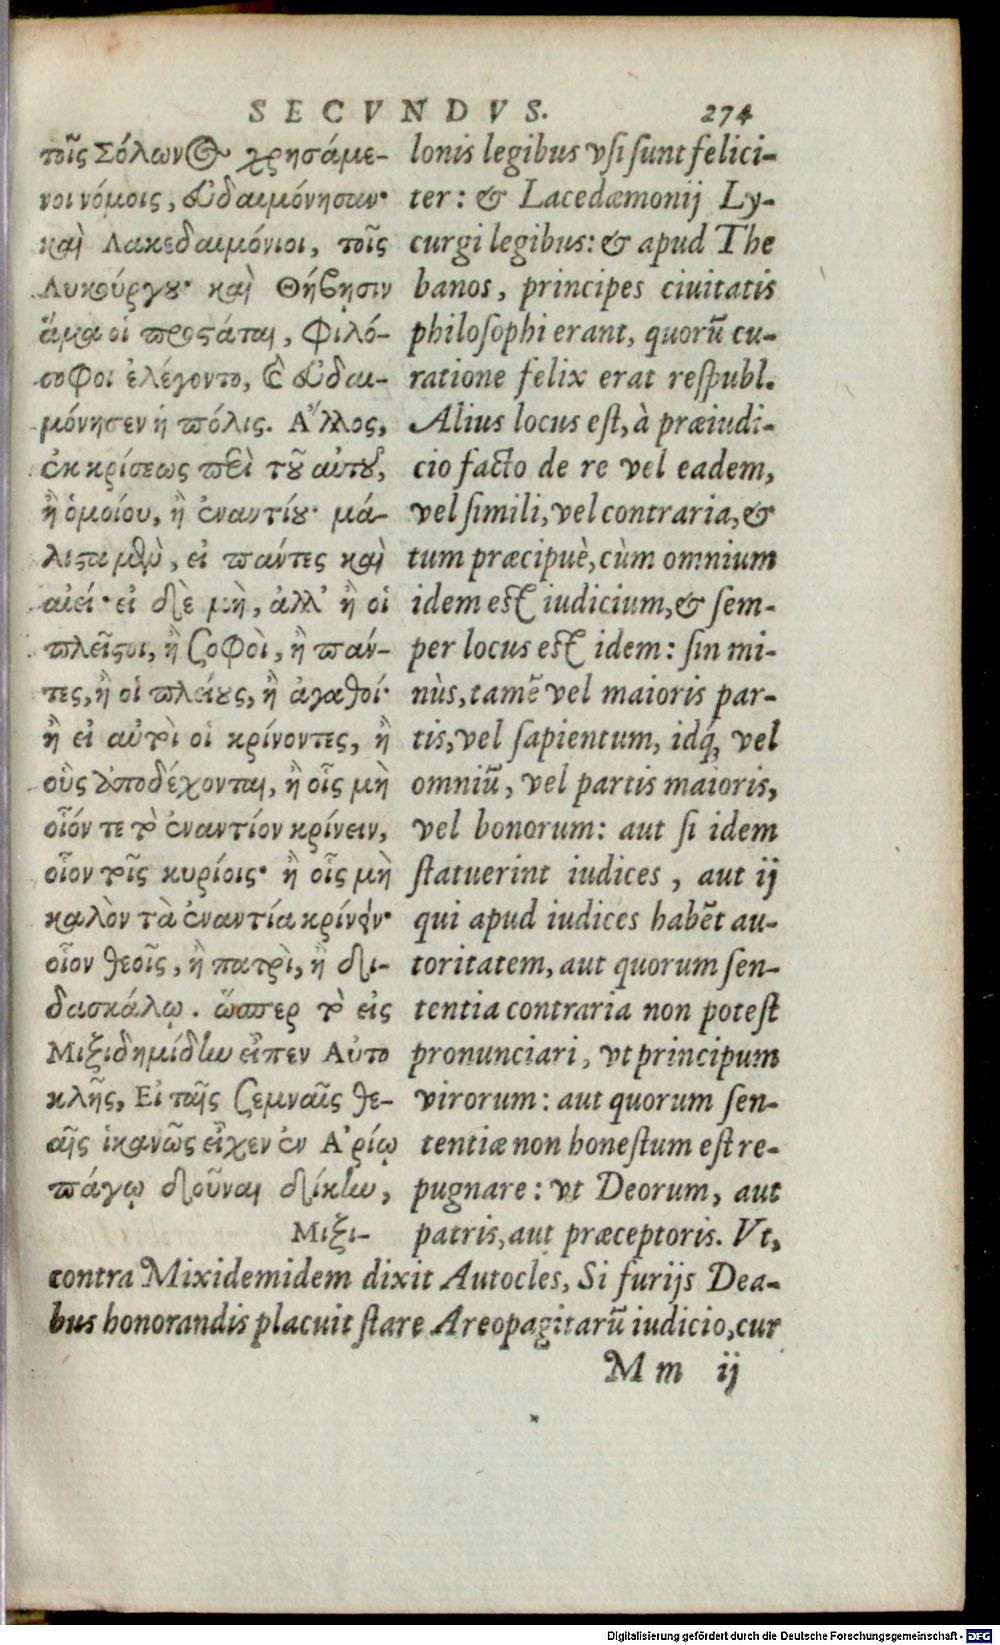 SECVNDVS. 274
τοῖς Σόλωνος χρησάμε-
νοι νόμοις, εὐδαιμόνησαν·
καὶ Λακεδαιμόνιοι, τοῖς
Λυκούργου· καὶ Θήβησιν
ἅμα οἱ προστάται, Φιλό-
σοφοι ἐλέγοντο, καὶ εὐδαι-
μόνησεν ἡ πόλις. Ἄλλος,
ἐκ κρίσεως περὶ τοῦ αὐτοῦ,
ἢ ὁμοίου, ἢ ἐναντίου· μά-
λιστα μὲν, εἰ πάντες καὶ
αἰεί· εἰ δὲ μὴ, ἀλλ' ἢ οἱ
πλεῖστοι, ἢ σοφοὶ, ἢ πάν-
τες, ἢ οἱ πλείους, ἢ ἀγαθοί·
ἢ εἰ αὐτοὶ οἱ κρίνοντες, ἢ
οὓς ἀποδέχονται, ἢ οἷς μὴ
οἷόν τε τὸ ἐναντίον κρίνειν,
οἷον τοῖς κυρίοις· ἢ οἷς μὴ
καλὸν τὰ ἐναντία κρίνειν·
οἷον θεοῖς, ἢ πατρὶ, ἢ δι-
δασκάλῳ. ὥσπερ τὸ εἰς
Μιξιδημίδην εἶπεν Αὐτο
κλῆς, Εἰ ταῖς σεμναῖς θε-
αῖς ἱκανῶς εἶχεν ἐν Ἀρίῳ
πάγῳ δοῦναι δίκην,
Μιξι-
lonis legibus vsi sunt felici-
ter: & Lacedæmonij Ly-
curgi legibus: & apud The
banos, principes ciuitatis
philosophi erant, quorũ cu-
ratione felix erat respubl.
Alius locus est, à præiudi-
cio facto de re vel eadem,
vel simili, vel contraria, &
tum præcipuè, cùm omnium
idem est iudicium, & sem-
per locus est idem: sin mi-
nùs, tamẽ vel maioris par-
tis, vel sapientum, idq́; vel
omniũ, vel partis maioris,
vel bonorum: aut si idem
statuerint iudices, aut ij
qui apud iudices habẽt au-
toritatem, aut quorum sen-
tentia contraria non potest
pronunciari, vt principum
virorum: aut quorum sen-
tentiæ non honestum est re-
pugnare: vt Deorum, aut
patris, aut præceptoris. Vt,
contra Mixidemidem dixit Autocles, Si furijs Dea-
bus honorandis placuit stare Areopagitarũ iudicio, cur
Mm ij
Digitalisierung gefördert durch die Deutsche Forschungsgemeinschaft - DFG